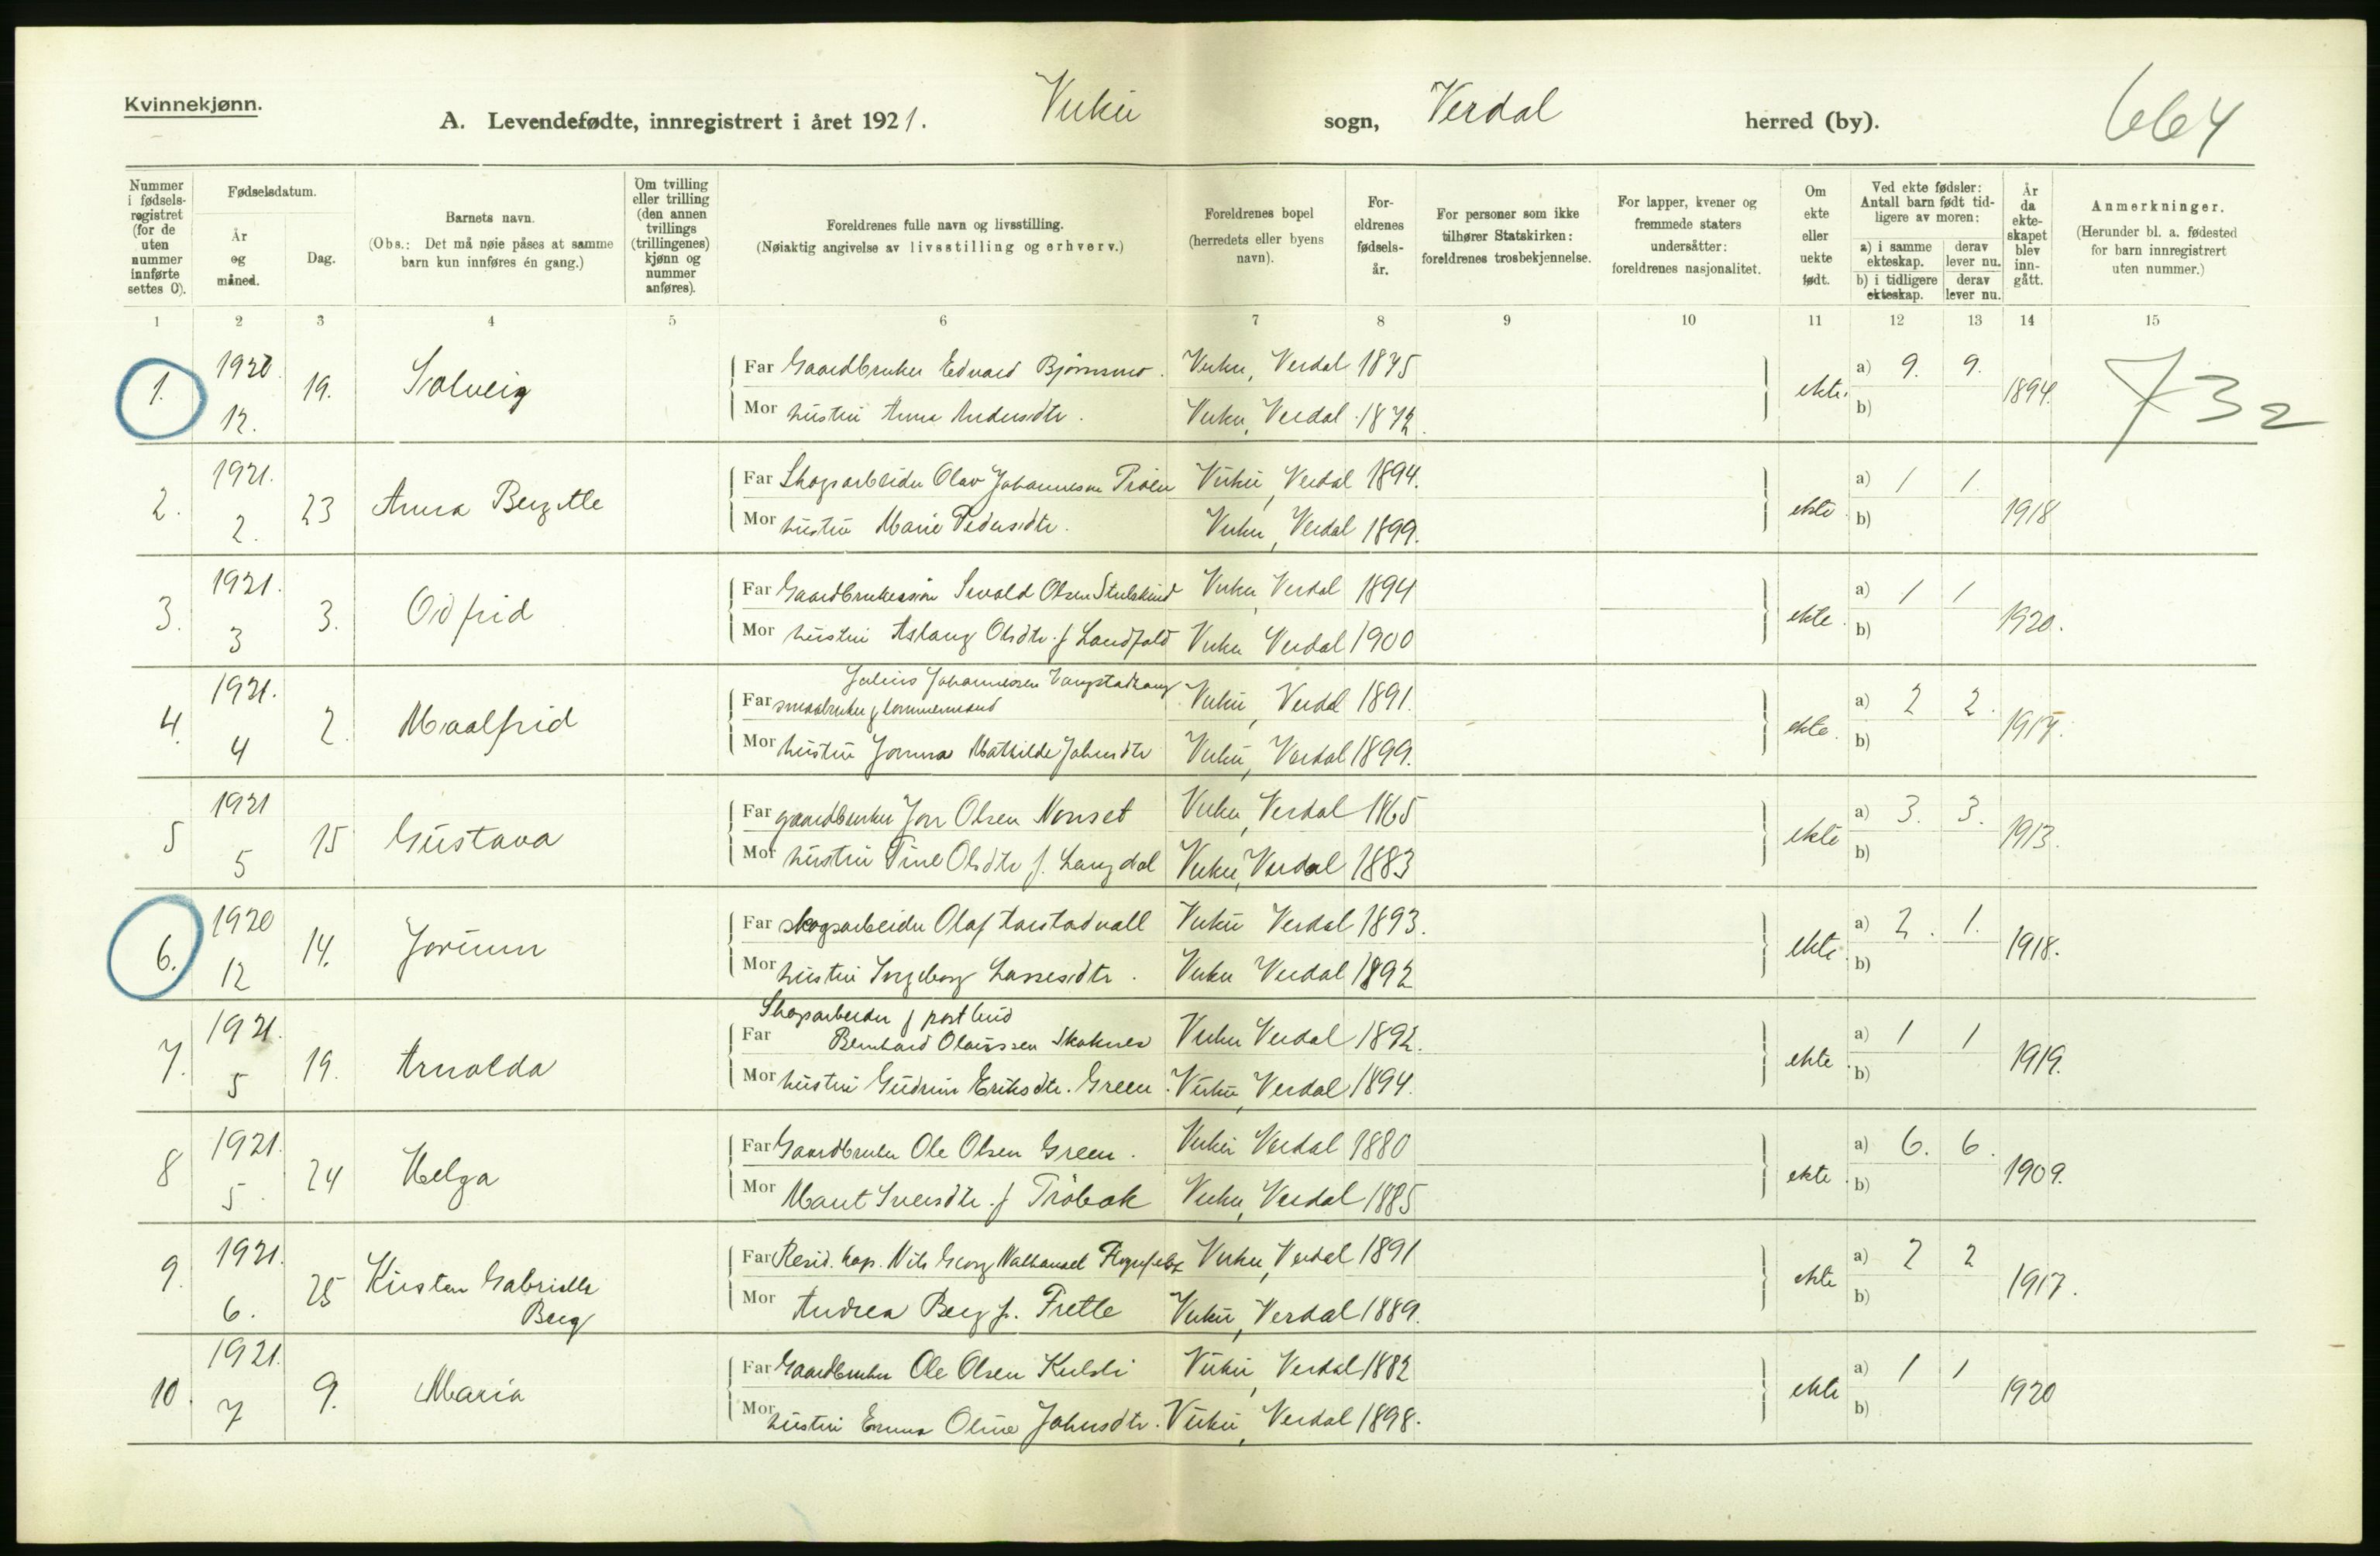 Kvinnekjønn.
A. Levendefødte, innregistrert i året 1921. Vuku sogn, Verdal herred (by). 664
Nummer i fødselsregistret (for de uten nummer innførte settes 0).
Fødselsdatum.
År og måned.
Dag.
Barnets navn.
(Obs.: Det må nøie påses at samme barn kun innføres én gang.)
Om tvilling eller trilling (den annen tvillings (trillingenes) kjønn og nummer anføres).
Foreldrenes fulle navn og livsstilling.
(Nøiaktig angivelse av livsstilling og erhverv.)
Foreldrenes bopel (herredets eller byens navn).
Foreldrenes fødselsår.
For personer som ikke tilhører Statskirken: foreldrenes trosbekjennelse.
For lapper, kvener og fremmede staters undersåtter: foreldrenes nasjonalitet.
Om ekte eller uekte født.
Ved ekte fødsler: Antall barn født tidligere av moren:
a) i samme ekteskap. derav lever nu.
b) i tidligere ekteskap. derav lever nu.
År da ekteskapet blev inngått.
Anmerkninger.
(Herunder bl. a. fødested for barn innregistrert uten nummer.)
1 2 3 4 5 6 7 8 9 10 11 12 13 14 15
1. 1920. 12. 19. Solveig
Far Gaardbruker Edvard Bjørnsmo. Vuku, Verdal 1875
Mor hustru Anna Andersdtr. Vuku, Verdal 1872.
ekte. a) 9. 9. b) 1894. 732
2. 1921. 2. 23 Anna Bergitte
Far Skogsarbeider Olav Johannesen Vuku, Verdal 1894.
Mor hustru Marie Pedersdtr. Vuku, Verdal 1899.
ekte. a) 1 1. b) 1918
3. 1921. 3 3. Odfrid
Far Gaardbrukersøn Sevald Olsen Vuku, Verdal 1894
Mor hustru Aslaug Olsdtr. f Landfald Vuku Verdal 1900
ekte. a) 1 1 b) 1920.
4. 1921. 4 2. Maalfrid
Julius Johannessen
Far smaabruker & tømmermand Vuku, Verdal 1891.
Mor hustru Jonna Mathilde Johnsdtr Vuku, Verdal 1899.
ekte. a) 2 2. b) 1917.
5 1921 5 15 Gustava
Far gaardbruker Jon Olsen Vuku, Verdal 1865
Mor hustru Tine Olsdtr f. Langdal Vuku, Verdal 1883
ekte a) 3. 3. b) 1913.
6. 1920 12 14. Jorunn
Far skogsarbeider Olaf Vuku Verdal 1893.
Mor hustru Ingeborg Lassesdtr. Vuku Verdal 1892
ekte. a) 2. 1. b) 1918.
7. 1921. 5 19. Arnolda
Skogsarbeider & postbud
Far Bernhard Olaussen Vuku Verdal 1892.
Mor hustru Gudrun Eriksdtr. Green. Vuku, Verdal 1894.
ekte. a) 1 1 b) 1919.
8 1921. 5. 24 Helga
Far Gaardbruker Ole Olsen Green. Vuku Verdal 1880
Mor Marit Iversdtr. f Vuku, Verdal 1885
ekte. a) 6. 6. b) 1909.
9. 1921. 6. 25 Kirsten Gabrielle
Berg
Far Resid. kap. Nils Georg Vuku, Verdal 1891
Mor Andrea Berg f. Frette Vuku, Verdal 1889.
ekte a) 2 2 b) 1917.
10. 1921. 7 9. Maria
Far Gaardbruker Ole Olsen Kulsli Vuku, Verdal 1882
Mor hustru Emma Oline Johnsdtr. Vuku, Verdal 1898.
ekte a) 1 1 b) 1920